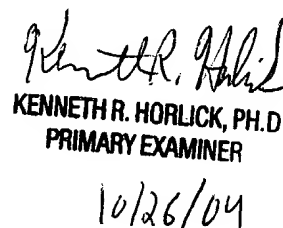 Kenneth R. Horlick
KENNETH R. HORLICK, PH.D
PRIMARY EXAMINER
10/26/04